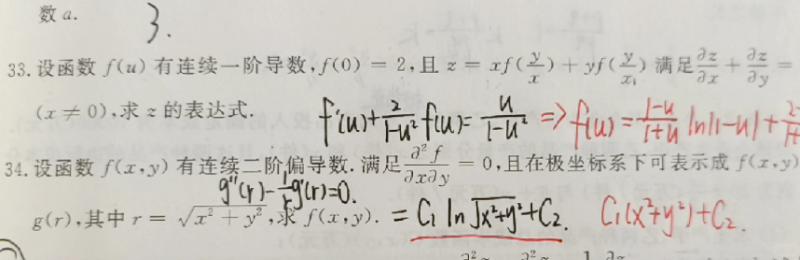 数 a. 3.
33. 设函数 f(u) 有连续一阶导数, f(0) = 2, 且 z = xf(y/x) + yf(y/x) 满足 ∂z/∂x + ∂z/∂y =
(x ≠ 0), 求 z 的表达式. f'(u)+2/(1-u²) f(u)=u/(1-u²) ⇒ f(u)=(1-u)/(1+u) ln|1-u|+
34. 设函数 f(x,y) 有连续二阶偏导数. 满足 ∂²f/∂x∂y = 0, 且在极坐标系下可表示成 f(x,y)
g''(r)-1/r g'(r)=0.
g(r), 其中 r = √(x² + y²), 求 f(x,y). = C₁ ln√(x²+y²)+C₂. C₁(x²+y²)+C₂.